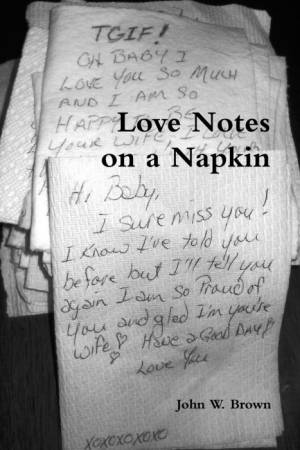 TGIF!
OH BABY I
LOVE YOU SO MUCH
AND I AM SO
HAPPY TO BE
YOUR WIFE, I
Love Notes
on a Napkin
Hi Baby,
I sure miss you!
I know I've told you
before but I'll tell you
again I am so Proud of
you and glad I'm you're
wife Have a Good Day
Love You
John W. Brown
XOXOXOXOXO